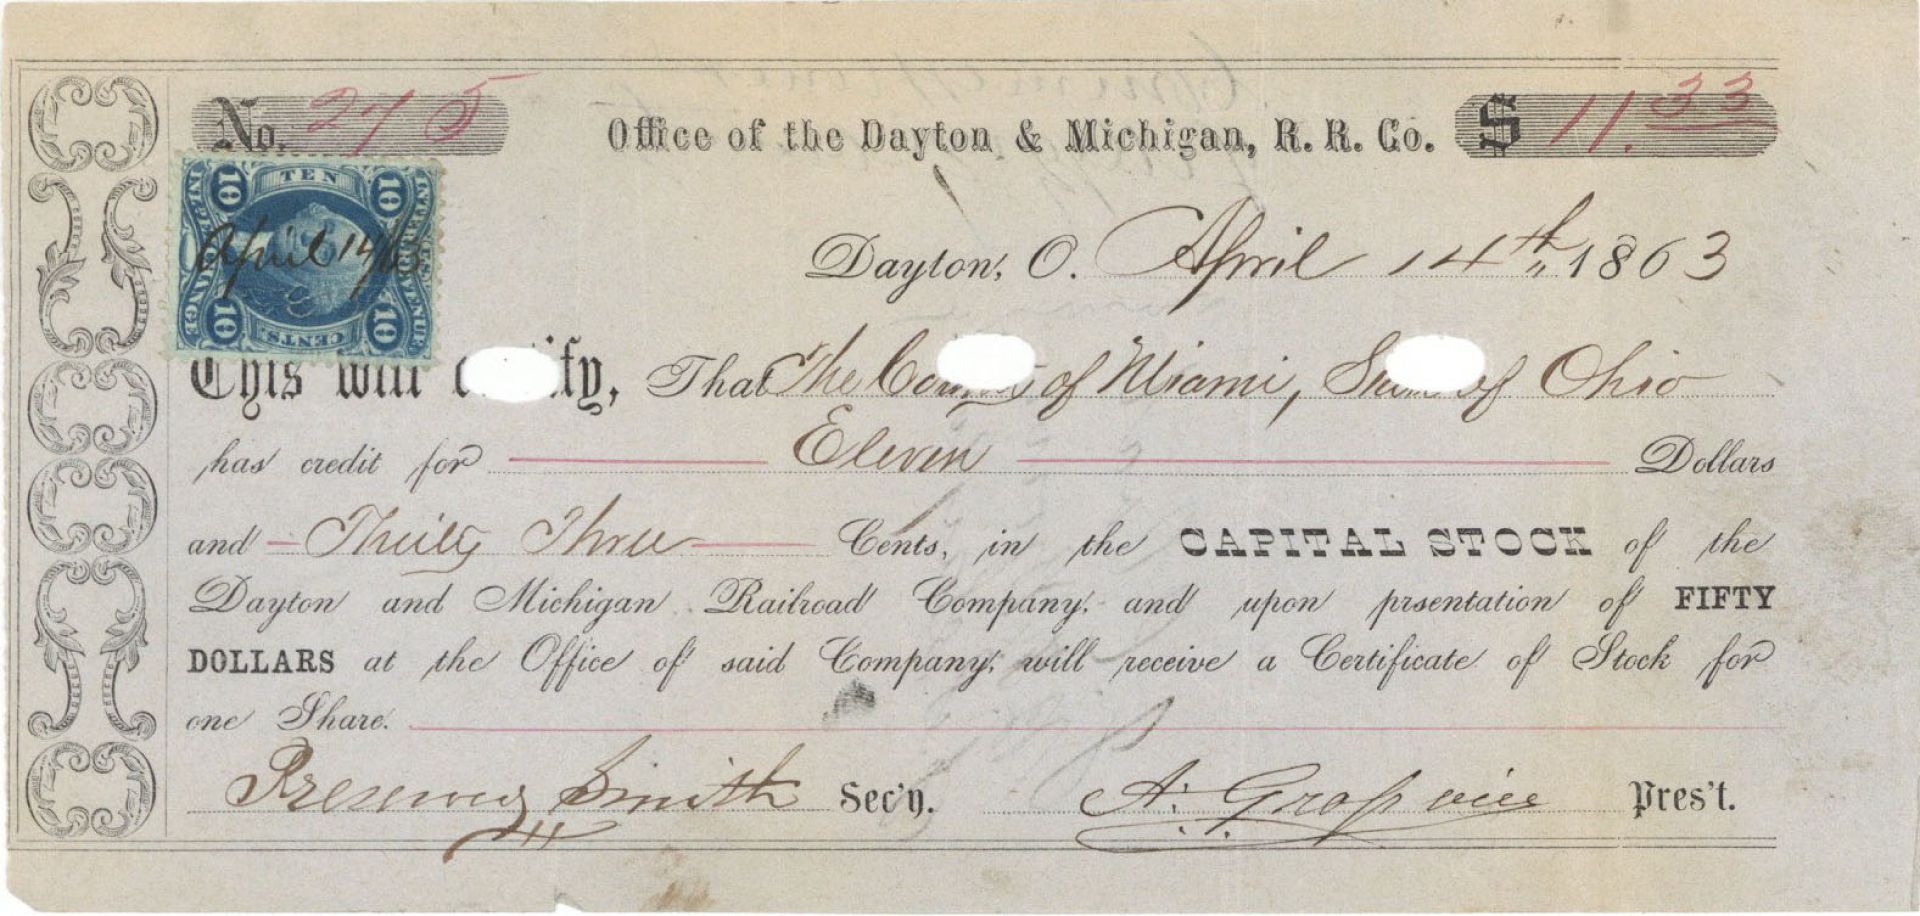 No. 275
Office of the Dayton & Michigan, R. R. Co. $ 11.33
TEN
10 10
INTER. EXCHANGE
INT. REVENUE
April 14/63
10 10
CENTS
Dayton, O. April 14th, 1863
This will certify, That The County of Miami, State of Ohio
has credit for Eleven Dollars
and Thirty Three Cents, in the CAPITAL STOCK of the
Dayton and Michigan Railroad Company, and upon prsentation of FIFTY
DOLLARS at the Office of said Company, will receive a Certificate of Stock for
one Share.
Preserved Smith Sec'y. A. Gross vice Pres't.